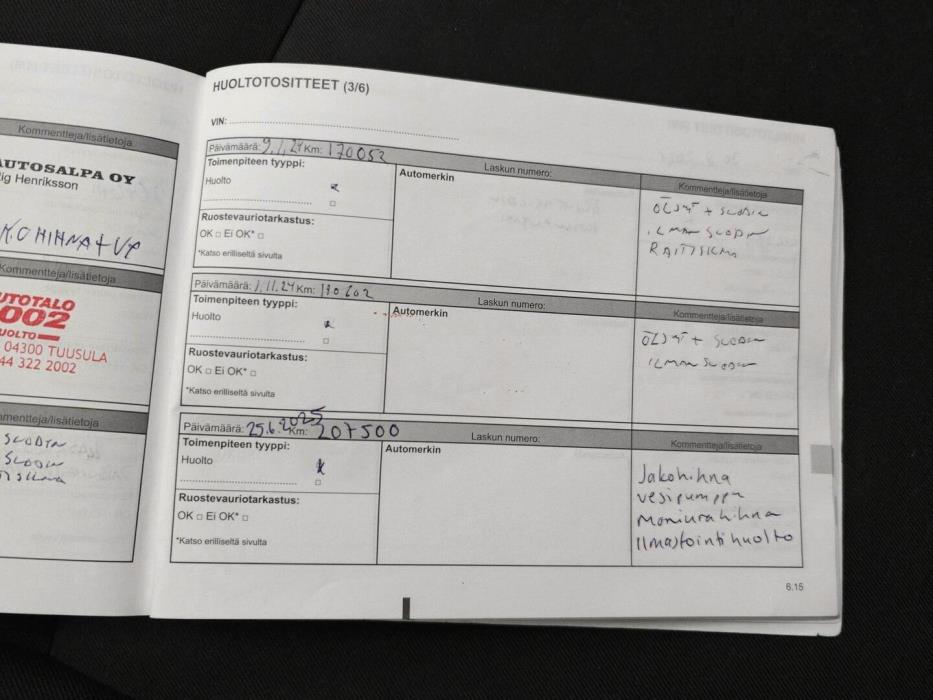 Kommentteja/lisätietoja
AUTOSALPA OY
ig Henriksson
Kommentteja/lisätietoja
UTOTALO
002
UOLTO
04300 TUUSULA
44 322 2002
mmentteja/lisätietoja
HUOLTOTOSITTEET (3/6)
VIN:
Päivämäärä: 9.1.24 Km: 170052
Laskun numero:
Kommentteja/lisätietoja
Toimenpiteen tyyppi:
Automerkin
Huolto x
ÖLJYT + SUODIN
ILMAN SUODIN
RAITISILMA
Ruostevauriotarkastus:
OK □ Ei OK* □
*Katso erilliseltä sivulta
Päivämäärä: 1.11.24 Km:
Laskun numero:
Kommentteja/lisätietoja
Toimenpiteen tyyppi:
Automerkin
Huolto x
ÖLJYT + SUODIN
ILMAN SUODIN
Ruostevauriotarkastus:
OK □ Ei OK* □
*Katso erilliseltä sivulta
Päivämäärä: 25.6.2025 Km: 207500
Laskun numero:
Kommentteja/lisätietoja
Toimenpiteen tyyppi:
Automerkin
Huolto x
Jakohihna
vesipumppu
Moniurahihna
Ilmastointihuolto
Ruostevauriotarkastus:
OK □ Ei OK* □
*Katso erilliseltä sivulta
6.15